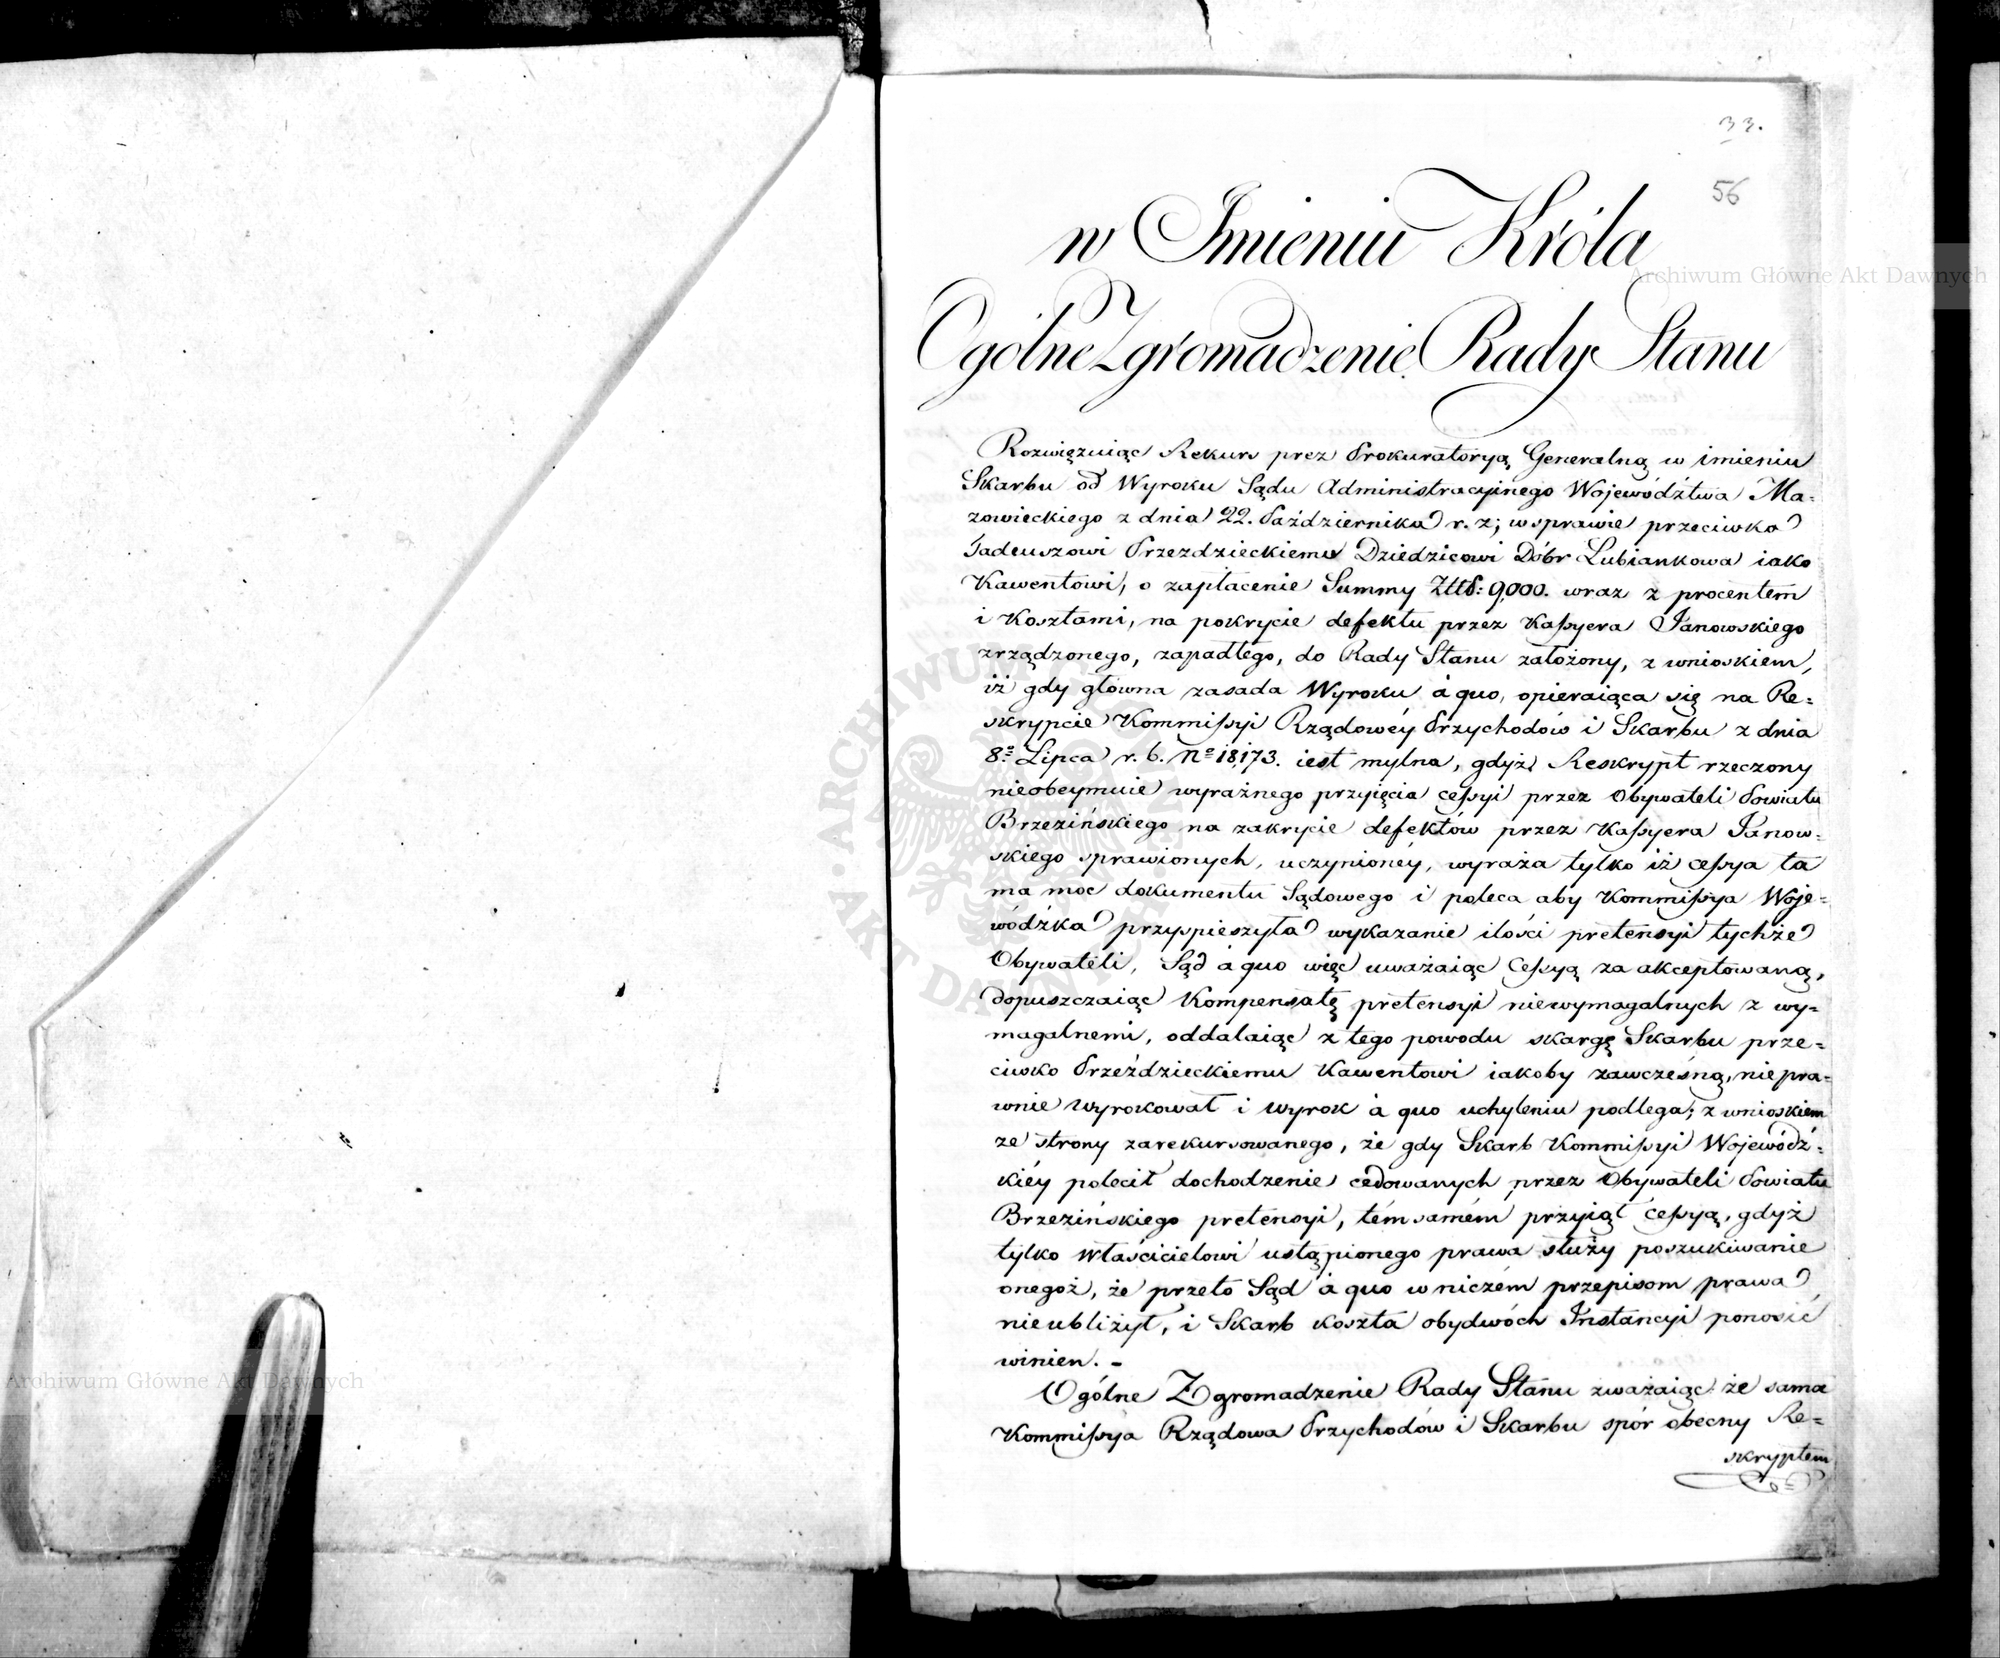 33.
56
w Imieniu Króla
Ogólne Zgromadzenie Rady Stanu
Rozwięzuiąc Rekurs przez Prokuratoryą Generalną w imieniu
Skarbu od Wyroku Sądu Administracyinego Województwa Ma=
zowieckiego z dnia 22. Października r. z; w sprawie przeciwko
Tadeuszowi Przezdzieckiemu Dziedzicowi Dóbr Lubiankowa iako
Kawentowi, o zapłacenie Summy Złtt: 9,000. wraz z procentem
i Kosztami, na pokrycie defektu przez Kassyera Janowskiego
zrządzonego, zapadłego, do Rady Stanu założony, z wnioskiem,
iż gdy główna zasada Wyroku à quo, opieraiąca się na Re=
skrypcie Kommissyi Rządowéy Przychodów i Skarbu z dnia
8º Lipca r. b. Nº 18,173. iest mylna, gdyż Reskrypt rzeczony
nieobeymuie wyraźnego przyięcia cessyi przez Obywateli Powiatu
Brzezińskiego na zakrycie defektów przez Kassyera Janow=
skiego sprawionych, uczynionéy, wyraża tylko iż cessya ta
ma moc dokumentu Sądowego i poleca aby Kommissya Woje=
wódzka przyspieszyła wykazanie ilości pretensyi tychże
Obywatéli, Sąd à quo więc uważaiąc Cessyą za akceptowaną,
dopuszczaiąc Kompensatę pretensyi niewymagalnych z wy=
magalnemi, oddalaiąc z tego powodu skargę Skarbu prze=
ciwko Przeździeckiemu Kawentowi iakoby zawczesną, niepra=
wnie wyrokował i wyrok à quo uchyleniu podlega; z wnioskiem
ze strony zarekursowanego, że gdy Skarb Kommissyi Wojewódz=
kiéy polecił dochodzenie cedowanych przez Obywateli Powiatu
Brzezińskiego pretensyi, témsamém przyiął cessyą, gdyż
tylko Właścicielowi ustąpionego prawa służy poszukiwanie
onegoż, że przeto Sąd à quo w niczém przepisom prawa
nieubliżył, i Skarb koszta obydwóch Instancyi ponosić
winien. -
Ogólne Zgromadzenie Rady Stanu zważaiąc że sama
Kommissya Rządowa Przychodów i Skarbu spór obecny Re=
skryptem
Archiwum Główne Akt Dawnych
Archiwum Główne Akt Dawnych